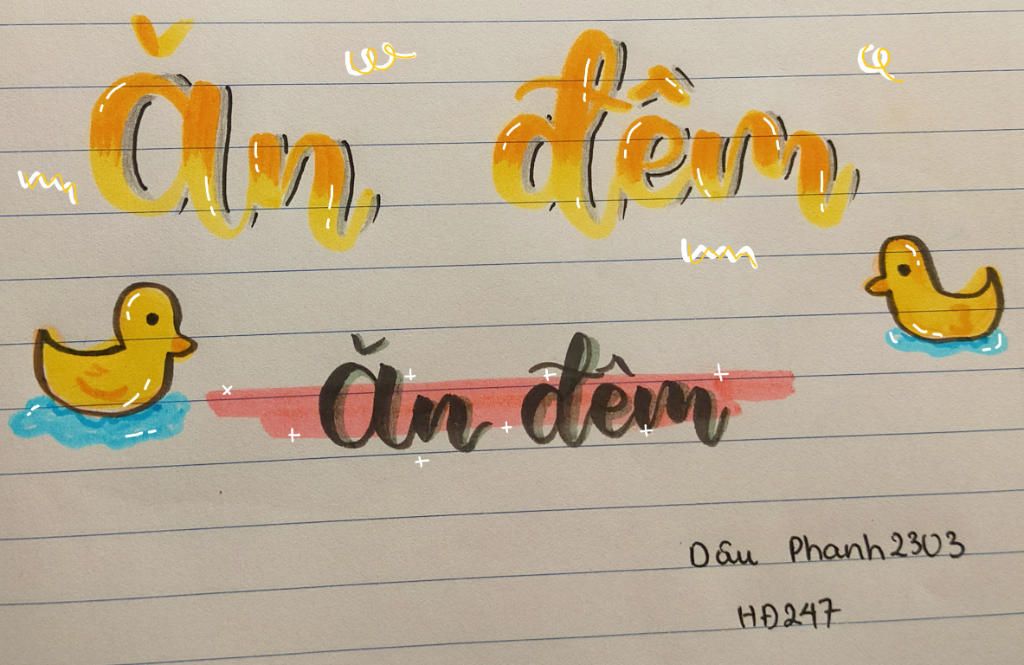 Ăn đêm
Ăn đêm
Dâu Phanh2303
HĐ247